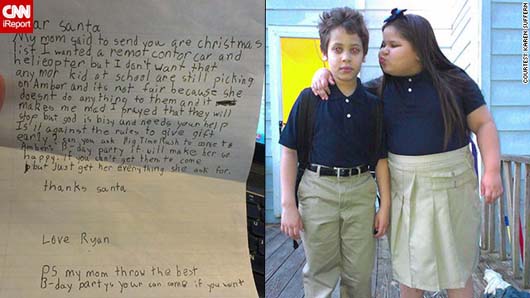 CNN
iReport
ar santa
My mom said to send you are christmas
list. I wanted a remot contor car and
helieopter but I don't want that
any mor kid at school are still picking
on Amber and its not fair because she
doesnt do anything to them and it
makes me mad. I prayed that they will
stop but god is bisy and needs your help
Is it against the rules to give gift
early? Can you ask Big Time Rush to come to
Amber's b-day party. It will make her so
happy. If you don't get them to come
but Just get her everything she ask for.
thanks santa
Love Ryan
PS my mom throw the best
B-day partys your can come if you want
COURTESY KAREN SUFFERN